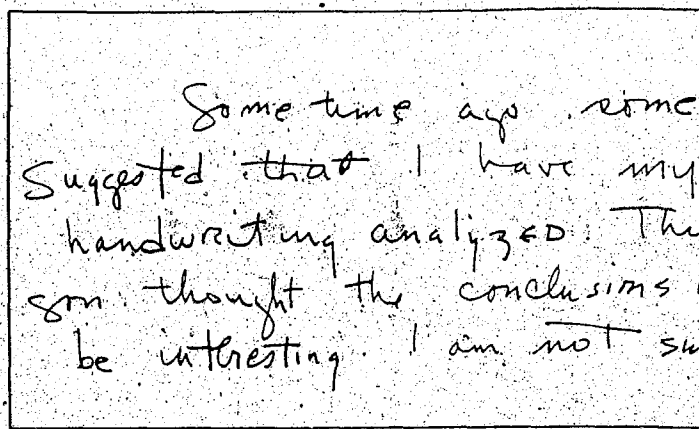 Some time ago some
Suggested that I have my
handwriting analyzed. The
son thought the conclusions
be interesting. I am not su